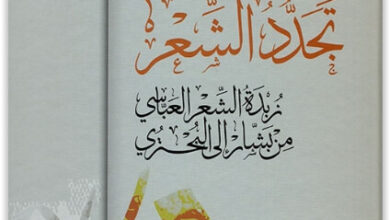 تَجَدُّدُ الشِّعْرِ
زُبْدَةُ الشِّعْرِ العَبَّاسِي
مِنْ بَشَّارٍ إِلَى البُحْتُرِي